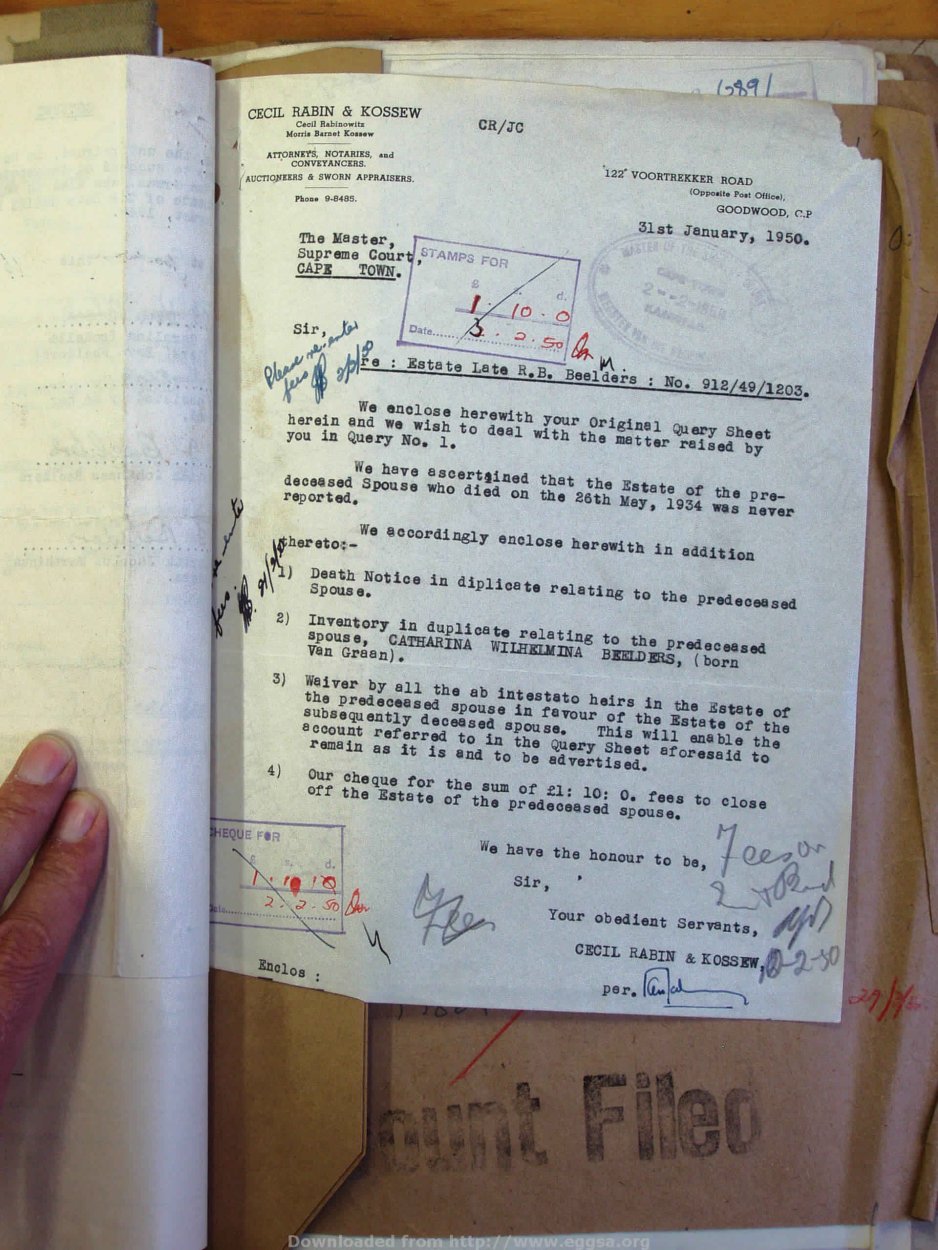 1289/
CECIL RABIN & KOSSEW
Cecil Rabinowitz
Morris Barnet Kossew
ATTORNEYS, NOTARIES, and
CONVEYANCERS.
AUCTIONEERS & SWORN APPRAISERS.
Phone 9-8485.
CR/JC
122 VOORTREKKER ROAD
(Opposite Post Office),
GOODWOOD, C.P
31st January, 1950.
The Master,
Supreme Court,
CAPE TOWN.
STAMPS FOR
£ s. d.
1. 10. 0
Date 3. 2. 50
MASTER OF THE
CAPE TOWN
Sir,
Please re-enter
fees 2/3/50
re : Estate Late R.B. Beelders : No. 912/49/1203.
We enclose herewith your Original Query Sheet
herein and we wish to deal with the matter raised by
you in Query No. 1.
We have ascertained that the Estate of the pre-
deceased Spouse who died on the 26th May, 1934 was never
reported.
We accordingly enclose herewith in addition
thereto:-
1) Death Notice in diplicate relating to the predeceased
Spouse.
2) Inventory in duplicate relating to the predeceased
spouse, CATHARINA WILHELMINA BEELDERS, (born
Van Graan).
3) Waiver by all the ab intestato heirs in the Estate of
the predeceased spouse in favour of the Estate of the
subsequently deceased spouse. This will enable the
account referred to in the Query Sheet aforesaid to
remain as it is and to be advertised.
4) Our cheque for the sum of £1: 10: 0. fees to close
off the Estate of the predeceased spouse.
CHEQUE FOR
£ s. d.
1. 10
2. 2. 50
We have the honour to be,
Sir,
Your obedient Servants,
CECIL RABIN & KOSSEW,
per.
Fees
Fees on
2-50
Enclos :
29/3/
ount Filed
Downloaded from http://www.eggsa.org